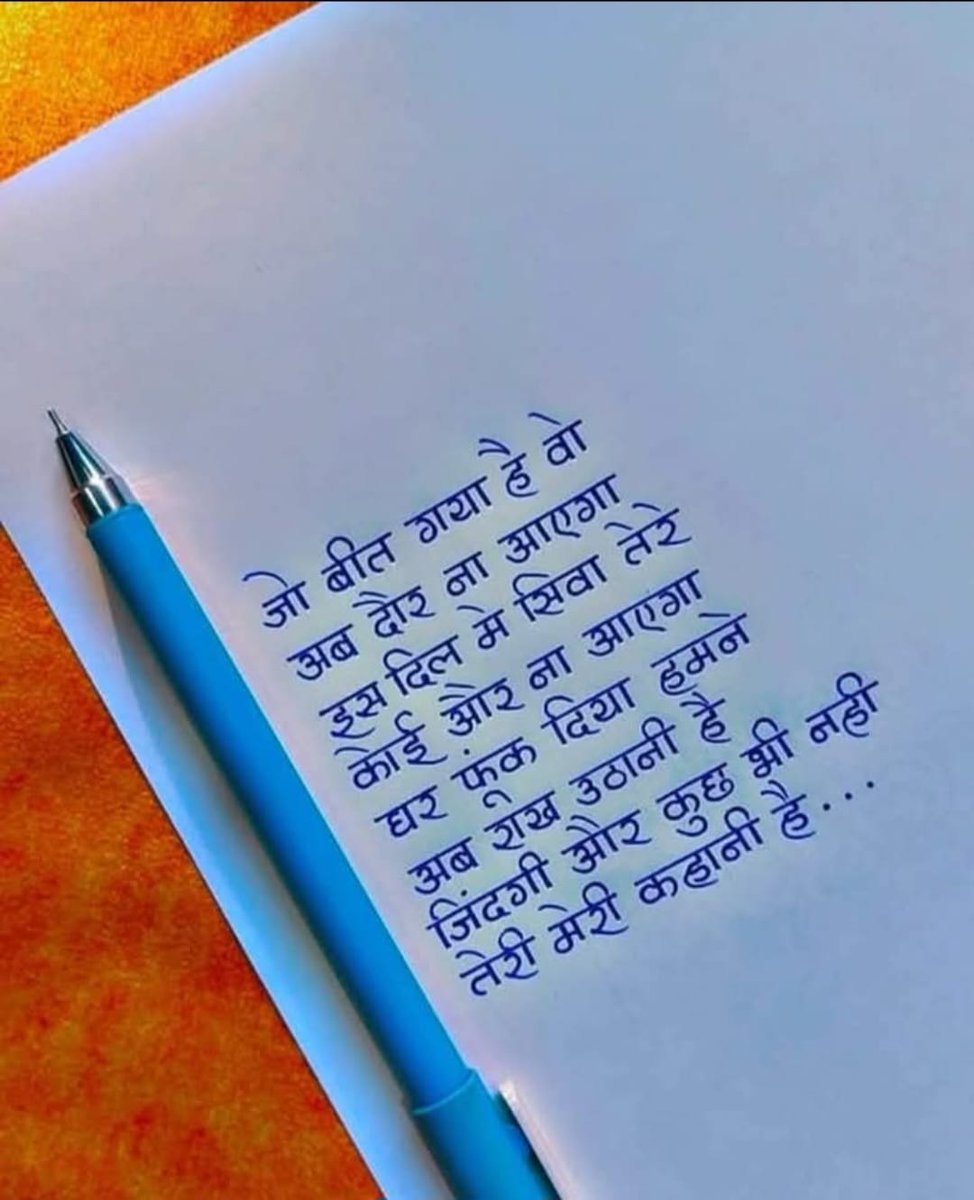 जो बीत गया है वो
अब दौर ना आएगा
इस दिल मे सिवा तेरे
कोई और ना आएगा
घर फूंक दिया हमने
अब राख उठानी है
जिंदगी और कुछ भी नही
तेरी मेरी कहानी है...